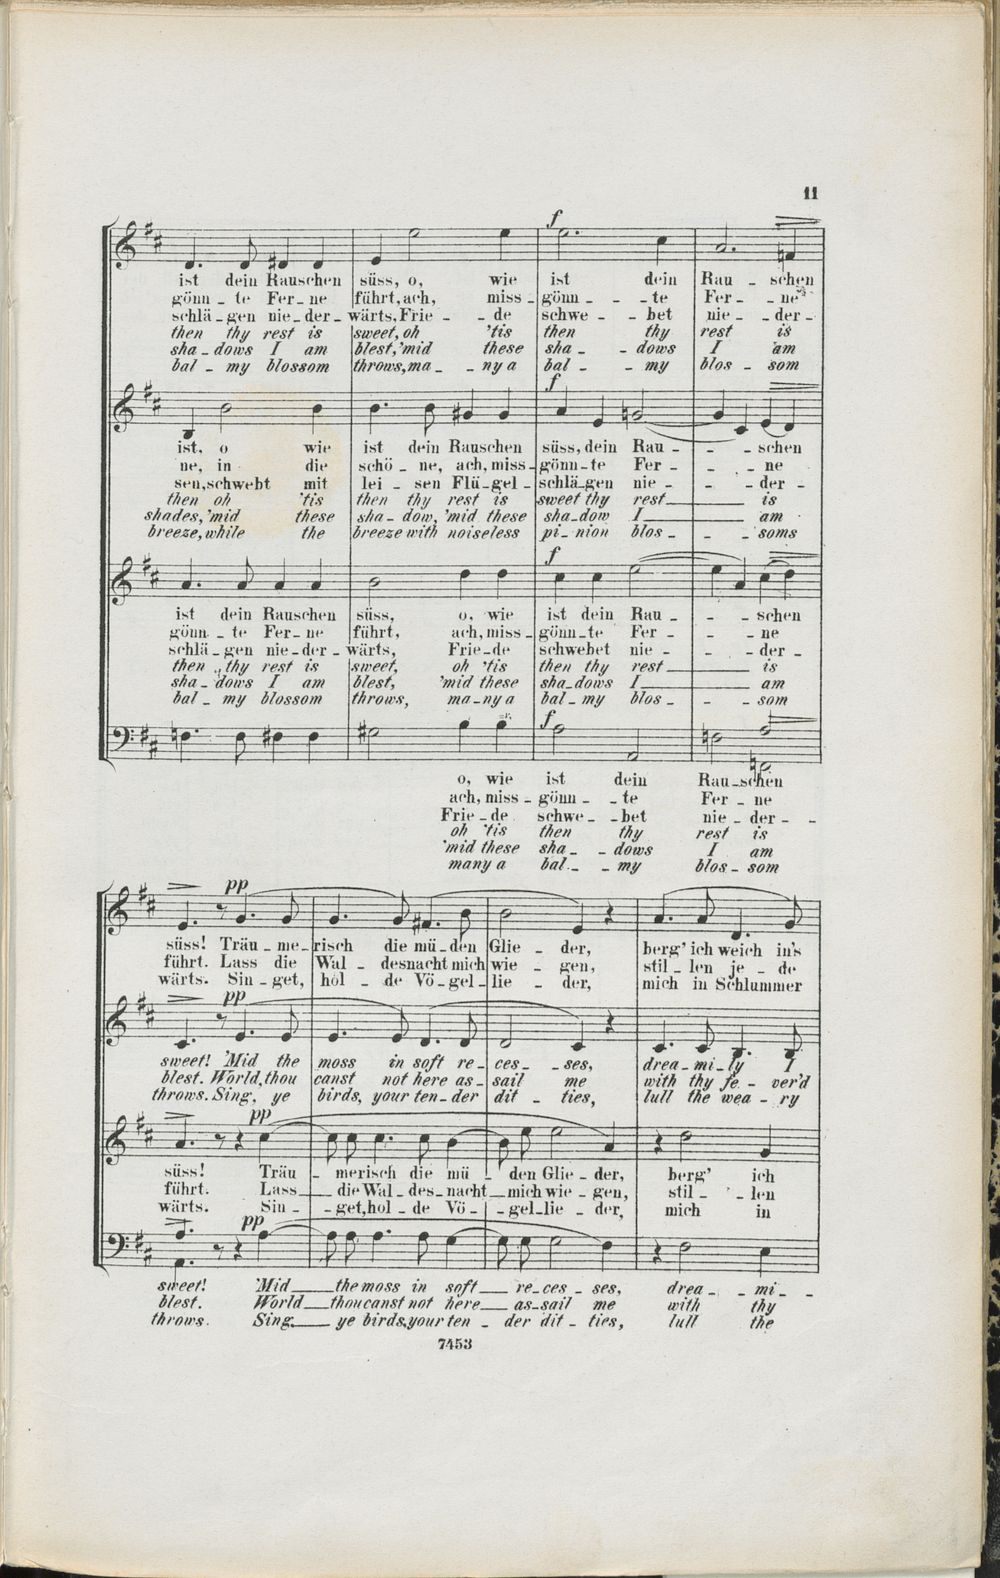 11
f
ist dein Rauschen süss, o, wie ist dein Rau - schen
gönn - te Fer - ne führt, ach, miss - gönn - - te Fer - ne
schlä - gen nie - der - wärts, Frie - - de schwe - - bet nie - - der -
then thy rest is sweet, oh 'tis then thy rest is
sha - dows I am blest, 'mid these sha - - dows I am
bal - my blossom throws, ma - - ny a bal - - my blos - som
f
ist, o wie ist dein Rauschen süss, dein Rau - - - schen
ne, in die schö - ne, ach, miss - gönn - te Fer - - - ne
sen, schwebt mit lei - sen Flü - gel - schlä - gen nie - - - der -
then oh 'tis then thy rest is sweet thy rest is
shades, 'mid these sha - dow, 'mid these sha - dow I am
breeze, while the breeze with noiseless pi - nion blos - - - soms
f
ist dein Rauschen süss, o, wie ist dein Rau - - - schen
gönn - te Fer - ne führt, ach, miss - gönn - te Fer - - - ne
schlä - gen nie - der - wärts, Frie - de schwebet nie - - - der -
then thy rest is sweet, oh 'tis then thy rest is
sha - dows I am blest, 'mid these sha - dows I am
bal - my blossom throws, ma - ny a bal - my blos - - - som
f
o, wie ist dein Rau - schen
ach, miss - gönn - - te Fer - ne
Frie - de schwe - - bet nie - der - -
oh 'tis then thy rest is
'mid these sha - - dows I am
many a bal - - my blos - som
pp
süss! Träu - me - risch die mü - den Glie - der, berg' ich weich in's
führt. Lass die Wal - desnacht mich wie - gen, stil - len je - de
wärts. Sin - get, hol - de Vö - gel - lie - der, mich in Schlummer
pp
sweet! 'Mid the moss in soft re - ces - ses, drea - mi - ly I
blest. World, thou canst not here as - sail me with thy fe - ver'd
throws. Sing, ye birds, your ten - der dit - ties, lull the wea - ry
pp
süss! Träu - merisch die mü - den Glie - der, berg' ich
führt. Lass die Wal - des - nacht mich wie - gen, stil - - len
wärts. Sin - - get, hol - de Vö - - gel - lie - der, mich in
pp
sweet! 'Mid the moss in soft re - ces - ses, drea - - mi - -
blest. World thou canst not here as - sail me with thy
throws. Sing ye birds, your ten - der dit - ties, lull the
7453